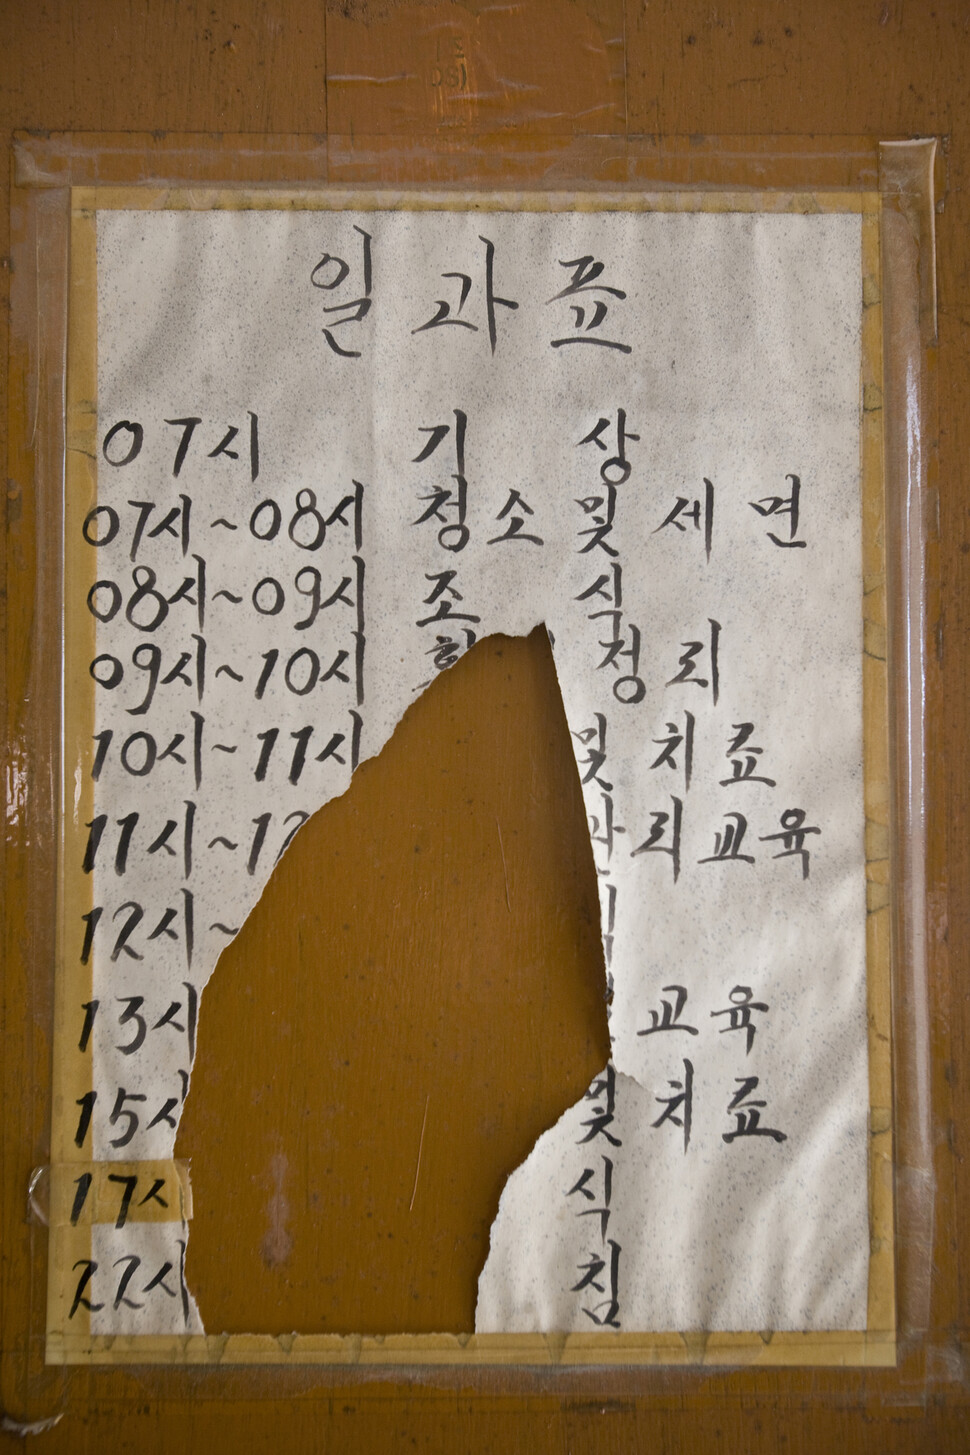 일과표
07시 기 상
07시~08시 청소 및 세면
08시~09시 조 식
09시~10시 정리
10시~11시 및 치료
11시~ 리교육
12시~
13시 교육
15시 및 치료
17시 식
22시 침